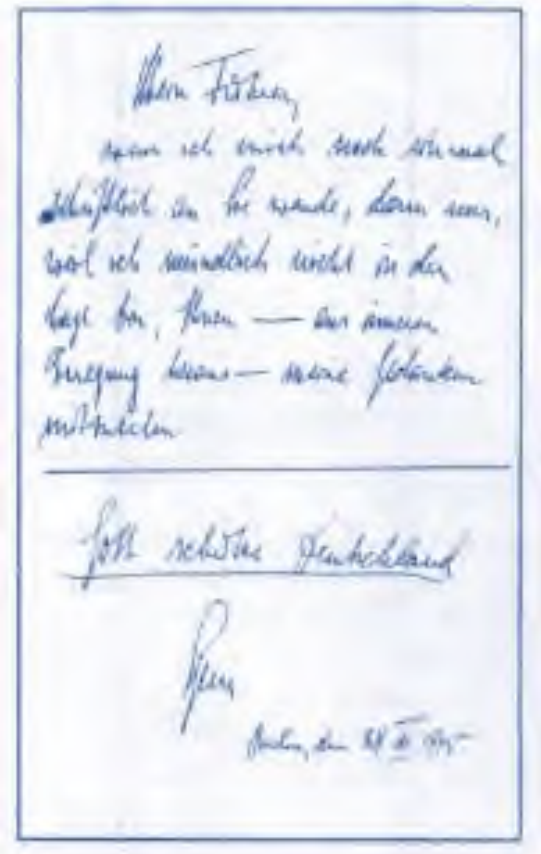 Mein Führer,
wenn ich mich noch einmal
schriftlich an Sie wende, dann nur,
weil ich mündlich nicht in der
Lage bin, Ihnen — aus innerer
Erregung heraus — meine Gedanken
mitzuteilen
Gott schütze Deutschland
Berlin, den